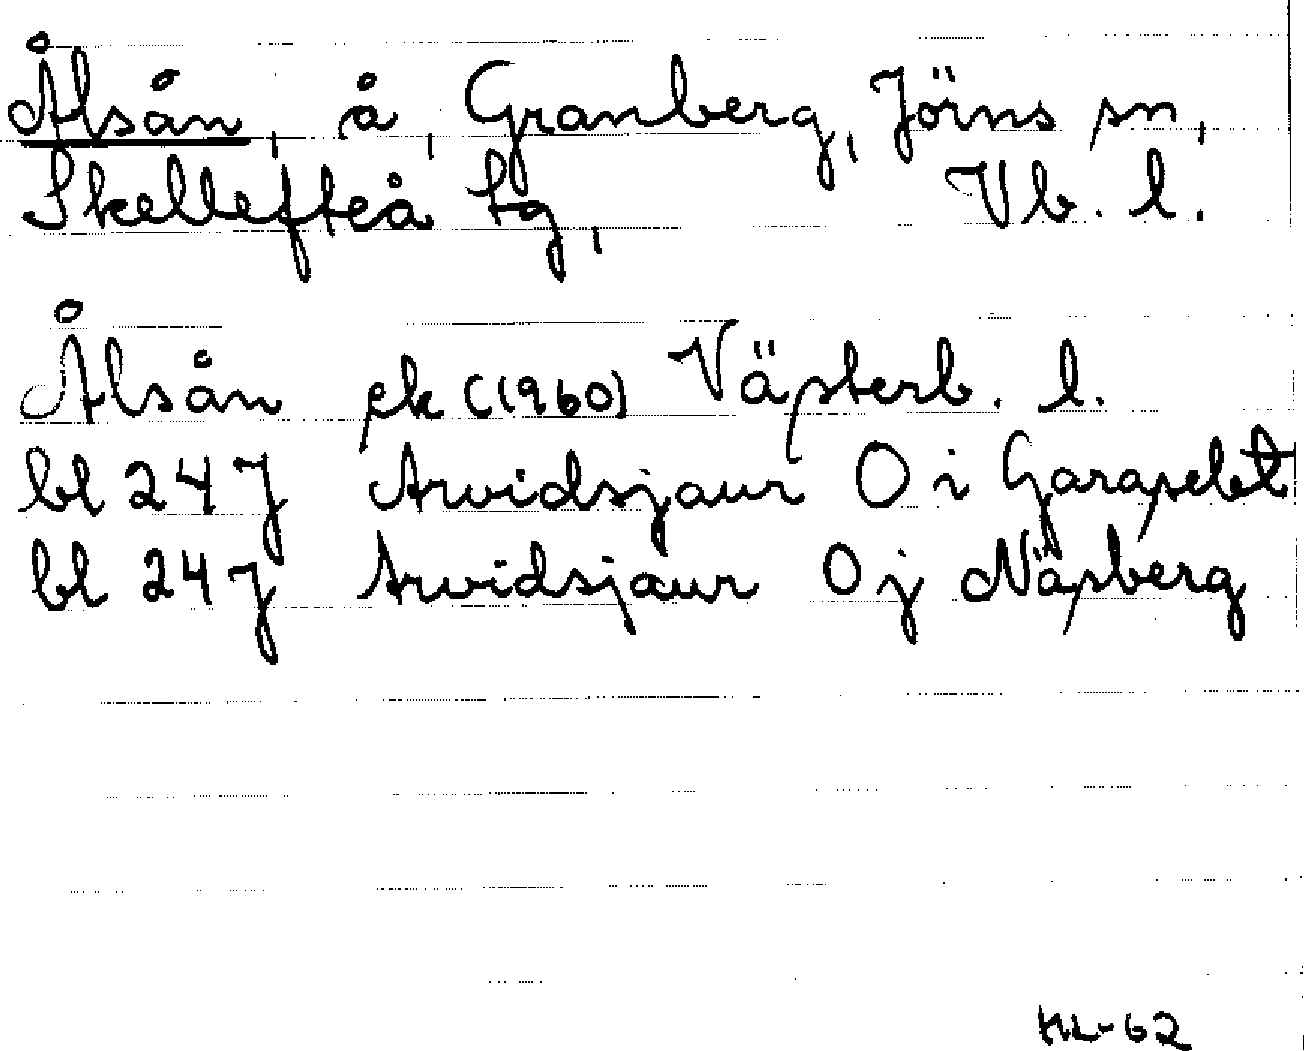 Ålsån, å, Granberg, Jörns sn,
Skellefteå tg, Vb. l.
Ålsån ek (1960) Västerb. l.
bl 24 J Arvidsjaur O i Garaselet
bl 24 J Arvidsjaur O j Näsberg
HL-62